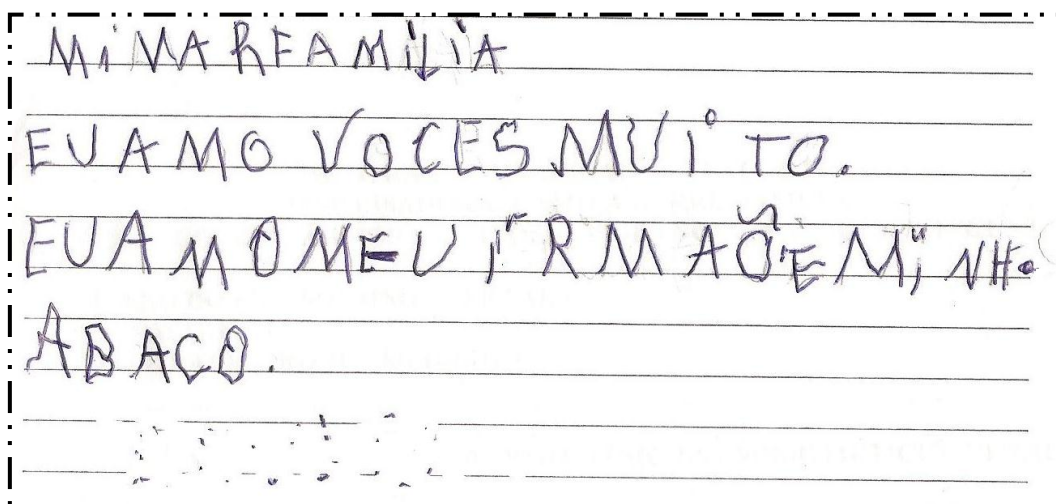 MiVARFAMíLiA
EUAMO VOCES MUiTO.
EUAMOMEU iRMAÕEMiNH.
ABACO.